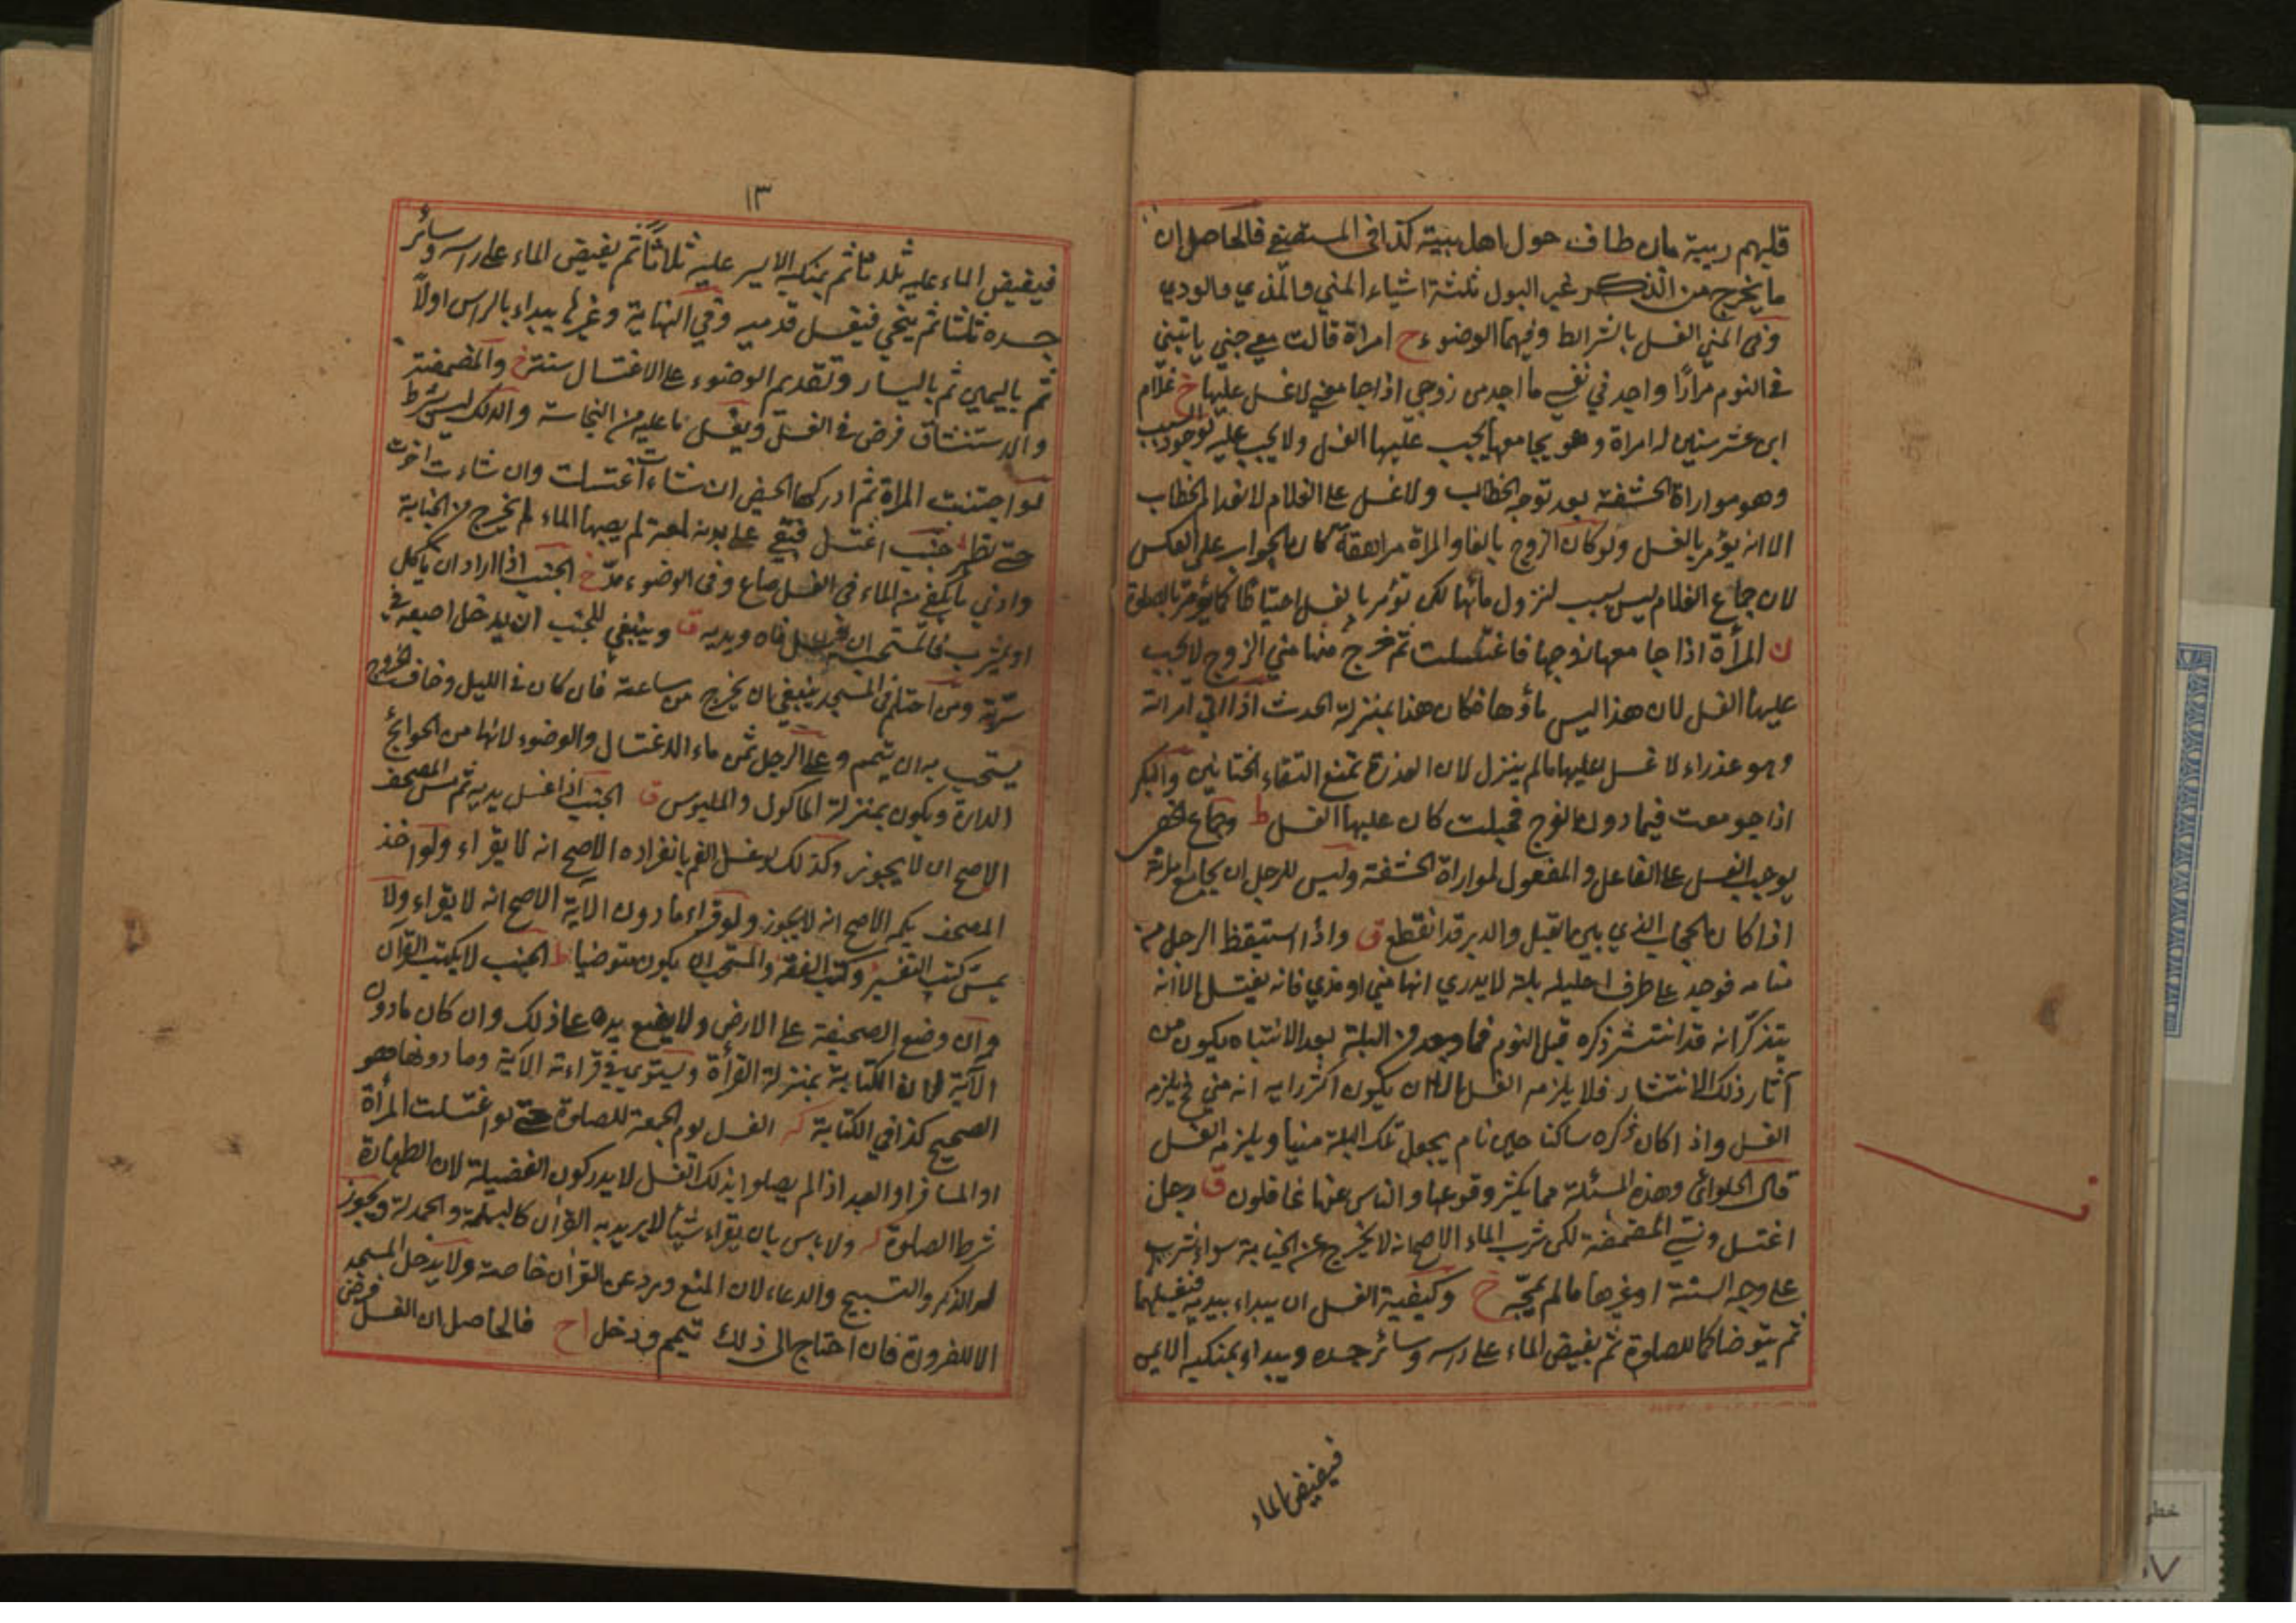 قلبهم ريبة مان طاف حول اهل بيته كذا فى المستصفى فالحاصل ان
ما يخرج من الذكر غير البول ثلثة اشياء المني والمذي والودي
وفى المني الغسل بالشرائط وفيهما الوضوء ح امراة قالت معي جني ياتيني
فى النوم مرارًا واجد في نفسي ما اجد من زوجي اذا جامعني لا غسل عليها خ غلام
ابن عشر سنين له امراة وهو يجامعها يجب عليها الغسل ولا يجب عليه لوجود السبب
وهو مواراة الحشفة بعد توجه الخطاب ولا غسل على الغلام لانعدام الخطاب
الا انه يؤمر بالغسل ولو كان الزوج بالغا والمراة مراهقة كان الجواب على العكس
لان جماع الغلام ليس بسبب لنزول مائها لكن تؤمر بالغسل احتياطا كما يؤمر بالصلوة
ن المرأة اذا جامعها زوجها فاغتسلت ثم خرج منها مني الزوج لا يجب
عليها الغسل لان هذا ليس ماؤها فكان هذا بمنزلة الحدث اذا اتى امراته
وهو عذراء لا غسل عليها ما لم ينزل لان العذرة تمنع التقاء الختانين والبكر
اذا جومعت فيما دون الفرج فحبلت كان عليها الغسل ط وجماع الخصي
يوجب الغسل على الفاعل والمفعول لمواراة الحشفة وليس للرجل ان يجامع امراته
اذا كان الحجاب الذي بين ما القبل والدبر قد انقطع ق واذا استيقظ الرجل من
منامه فوجد على طرف احليله بلة لا يدري انها مني او مذي فانه يغتسل الا انه
يتذكر انه قد انتشر ذكره قبل النوم فما وجد من البلة بعد الانتباه يكون من
آثار ذلك الانتشار فلا يلزمه الغسل الا ان يكون اكثر رايه انه مني فح يلزمه
الغسل واذا كان ذكره ساكنا حين نام يجعل تلك البلة منيا ويلزمه الغسل
قال الحلوائي وهذه المسئلة مما يكثر وقوعها والناس عنها غافلون ق رجل
اغتسل ونسي المضمضة لكن شرب الماء الاصح انه لا يخرج عن الجنابة سواء شرب
على وجه السنة او غيرها ما لم يمجّه خ وكيفية الغسل ان يبداء بيديه فيغسلهما
ثم يتوضا كما للصلوة ثم يفيض الماء على راسه وسائر جسده ويبداء بمنكبه الايمن
فيفيض الماء
١٣
فيفيض الماء عليه ثلاثا ثم بمنكبه الايسر عليه ثلاثًا ثم يفيض الماء على راسه وسائر
جسده ثلثا ثم ينحي فيغسل قدميه وفي النهاية وغيرها يبداء بالراس اولًا
ثم باليمين ثم باليسار وتقديم الوضوء على الاغتسال سنة خ والمضمضة
والاستنشاق فرض في الغسل ويغسل ما عليه من النجاسة والدلك ليس بشرط
لو اجتنبت المراة ثم ادركها الحيض ان شاءت اغتسلت وان شاءت اخرت
حتى تطهر جنب اغتسل فبقي على بدنه لمعة لم يصبها الماء لم يخرج من الجنابة
وادني ما يكفي من الماء في الغسل صاع وفى الوضوء مدّ خ الجنب اذا اراد ان ياكل
او يشرب فالمستحب ان يغسل فاه ويديه ق وينبغي للجنب ان يدخل اصبعه في
سرّته ومن احتلم فى المسجد ينبغي ان يخرج من ساعته فان كان فى الليل وخاف الخروج
يستحب به ان يتيمم و على الرجل ثمن ماء الاغتسال والوضوء لانها من الحوائج
الدارة ويكون بمنزلة الماكول والملبوس ق الجنب اذا غسل يديه ثم مس المصحف
الاصح ان لا يجوز وكذلك لو غسل الفم بانفراده الاصح انه لا يقراء ولو اخذ
المصحف بكمه الاصح انه لا يجوز ولو قراء ما دون الآية الاصح انه لا يقراء ولا
يمسّ كتب التفسير وكتب الفقه والمستحب ان يكون متوضيا ط الجنب لا يكتب القرآن
وان وضع الصحيفة على الارض ولا يضع يده على ذلك وان كان ما دون
الآية لان الكتابة بمنزلة القرأة ويستوي في قراءة الآية وما دونها هو
الصحيح كذا في الكتابة الغسل يوم الجمعة للصلوة حتى لو اغتسلت المرأة
او المسافر او العبد اذا لم يصلوا بذلك الغسل لا يدركون الفضيلة لان الطهارة
شرط الصلوة ولا باس بان يقراء شيأ لا يريد به القرآن كالبسملة والحمدلة ويجوز
له الذكر والتسبيح والدعاء لان المنع ورد عن القرآن خاصة ولا يدخل المسجد
الا للضرورة فان احتاج الى ذلك تيمم ودخل اح فالحاصل ان الغسل فرض